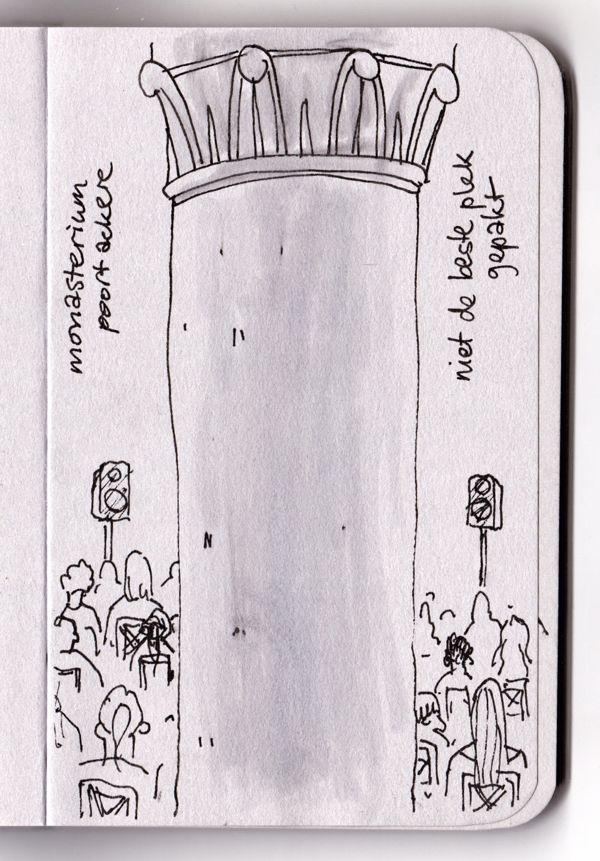 monasterium
poortackere
niet de beste plek
gepakt